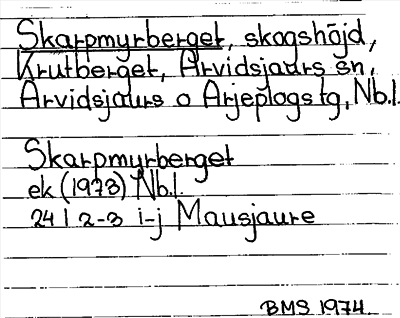 Skarpmyrberget, skogshöjd,
Krutberget, Arvidsjaurs sn,
Arvidsjaurs o Arjeplogs tg, Nb.l.
Skarpmyrberget
ek (1973) Nb.l.
24 I 2-3 i-j Mausjaure
BMS 1974